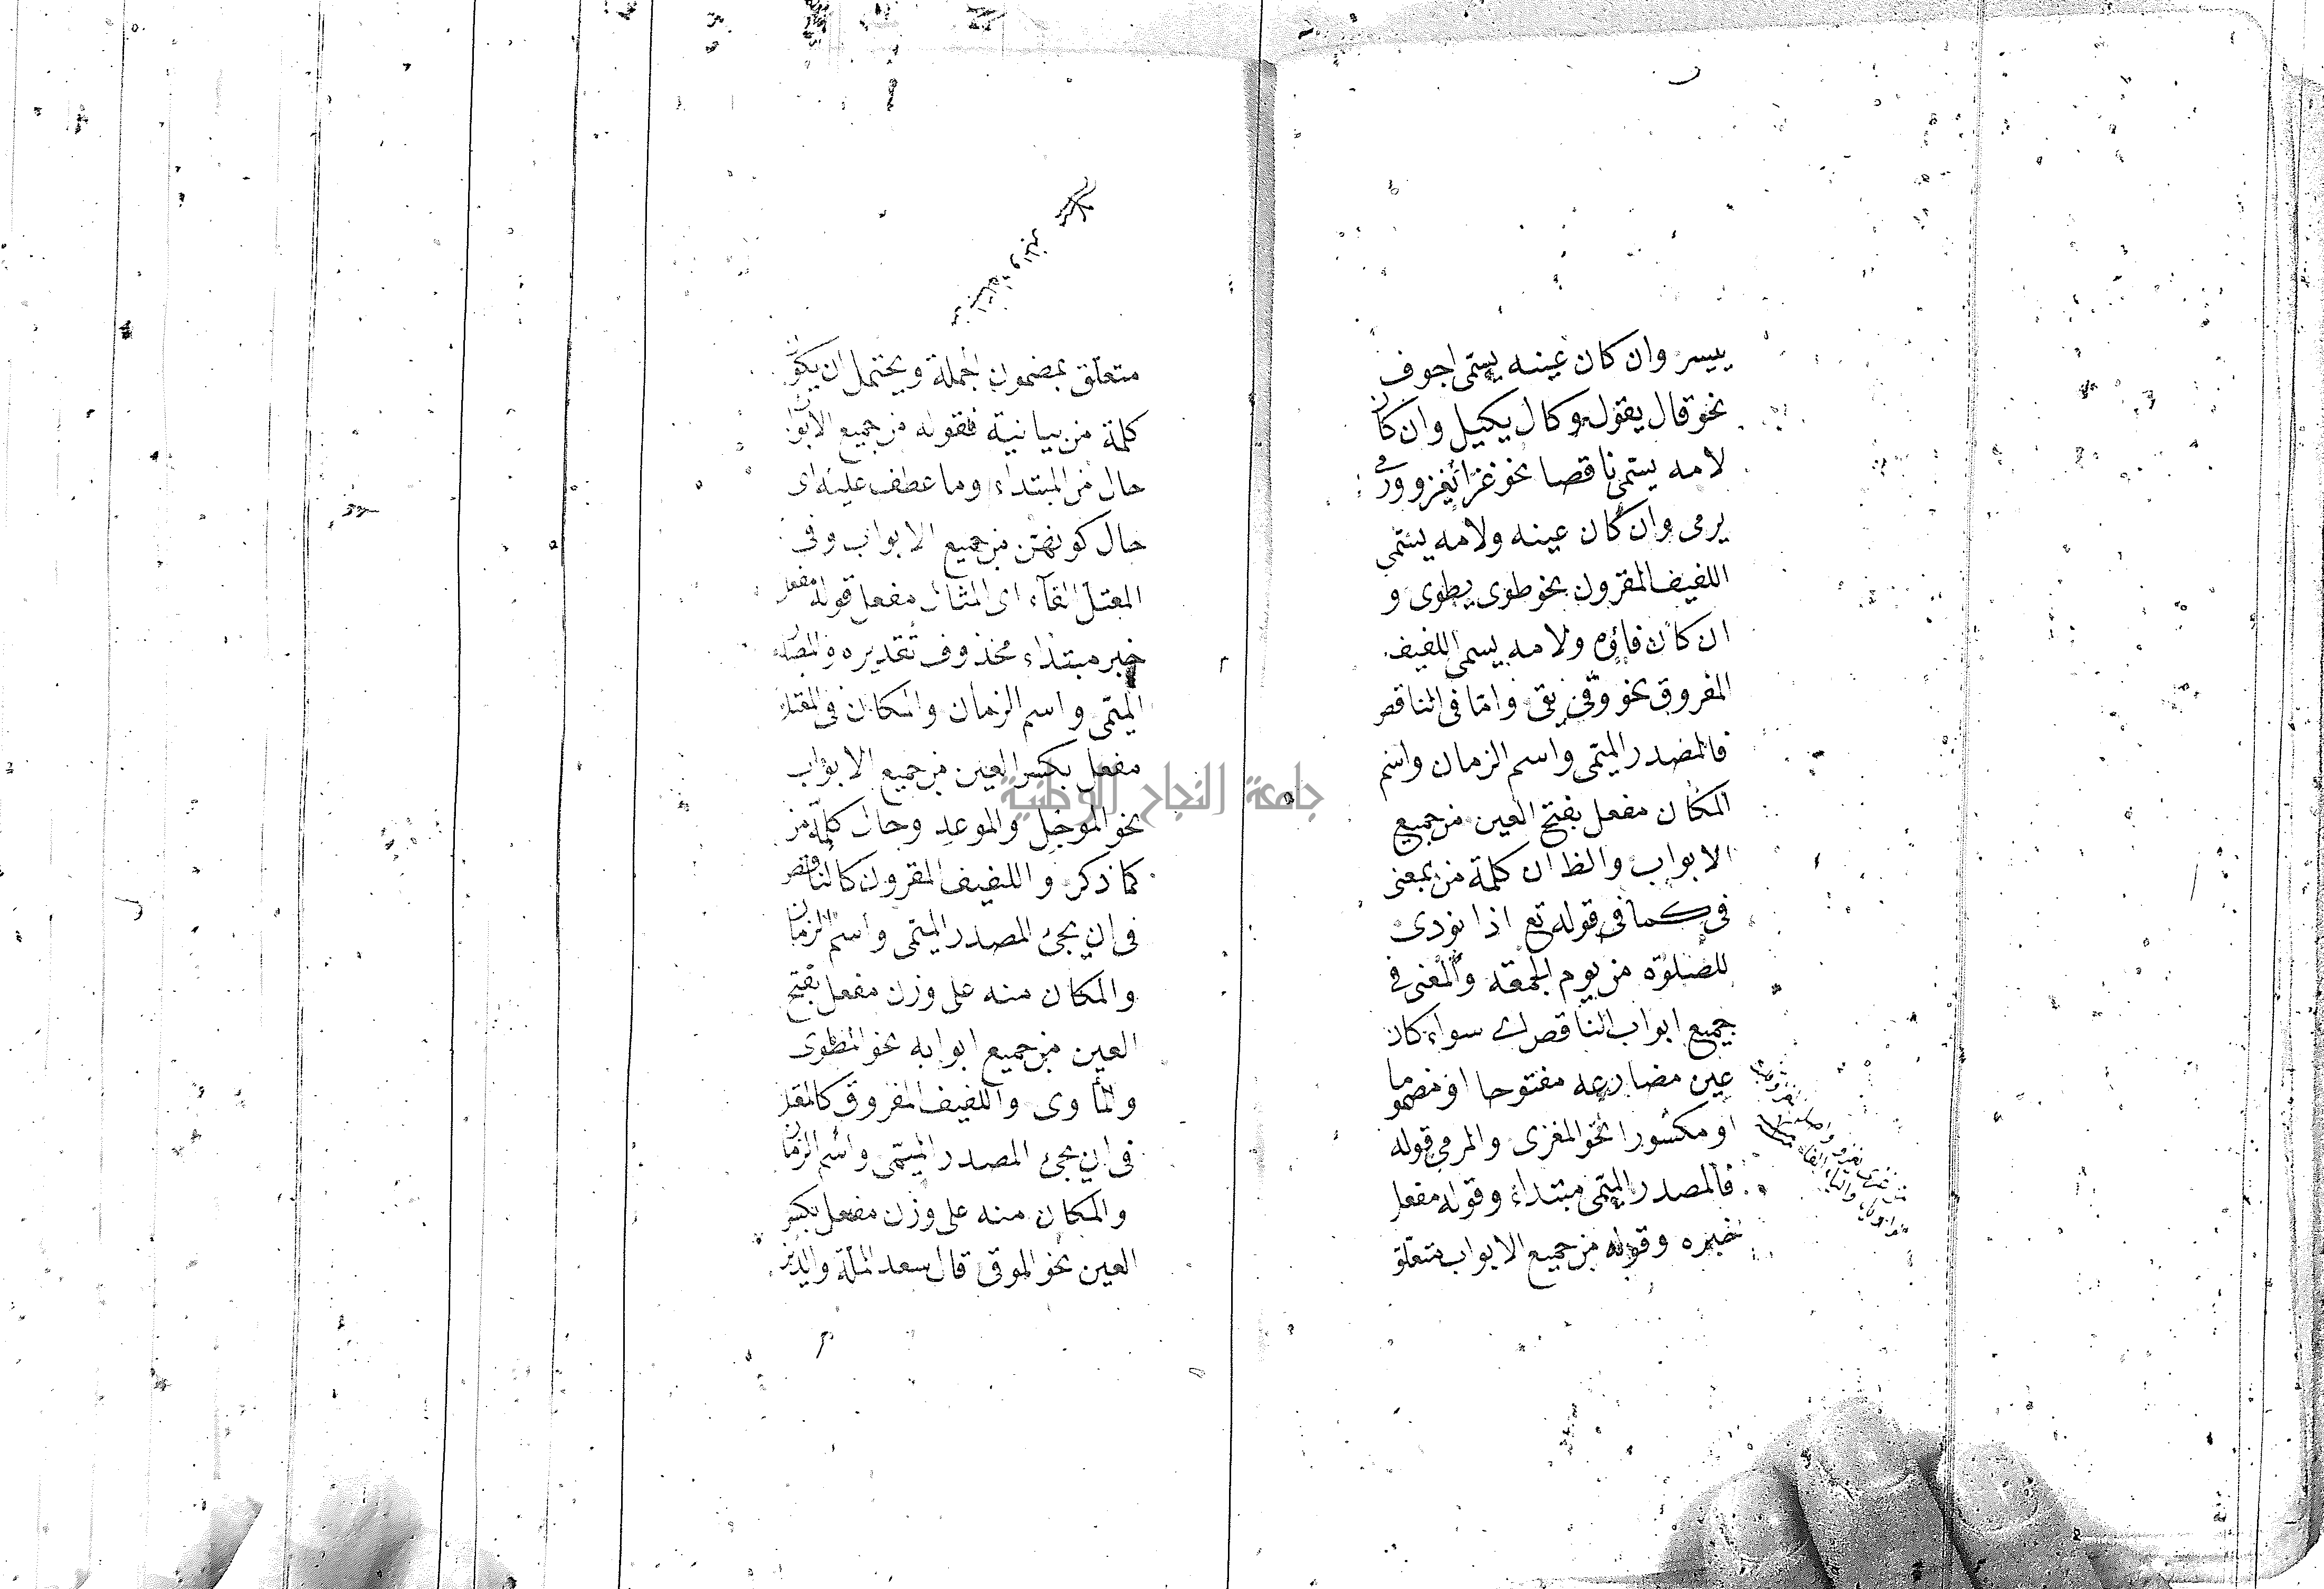 ييسر وان كان عينه يسمى اجوف
نحو قال يقول وكال يكيل وان كان
لامه يسمى ناقصا نحو غزا يغزو ورمى
يرمى وان كان عينه ولامه يسمى
اللفيف المقرون نحو طوى يطوى و
ان كان فاؤه ولامه يسمى اللفيف
المفروق نحو وقى يقى واما فى الناقص
فالمصدر الميمى واسم الزمان واسم
المكان مفعل بفتح العين من جميع
الابواب والظ ان كلمة من بمعنى
فى كما فى قوله تع اذا نودى
للصلوة من يوم الجمعة والمعنى فى
جميع ابواب الناقص اى سواء كان
عين مضارعه مفتوحا او مضموما
او مكسورا نحو المغزى والمرمى قوله
فالمصدر الميمى مبتداء وقوله مفعل
خبره وقوله من جميع الابواب متعلق
متعلق بمضمون الجملة ويحتمل ان يكون
كلمة من بيانية فقوله من جميع الابواب
حال من المبتداء وما عطف عليه اى
حال كونهن من جميع الابواب وفى
المعتل الفاء اى المثال مفعل قوله مفعل
خبر مبتداء محذوف تقديره والمصدر
الميمى واسم الزمان والمكان فى المعتل
مفعل بكسر العين من جميع الابواب
نحو الموجل والموعد وحال كلمة من
كما ذكر واللفيف المقرون كالناقص
فى ان يجئ المصدر الميمى واسم الزمان
والمكان منه على وزن مفعل بفتح
العين من جميع ابوابه نحو المطوى
والمأوى واللفيف المفروق كالمعتل
فى ان يجئ المصدر الميمى واسم الزمان
والمكان منه على وزن مفعل بكسر
العين نحو الموقى قال سعد الملة والدين
جامعة النجاح الوطنية